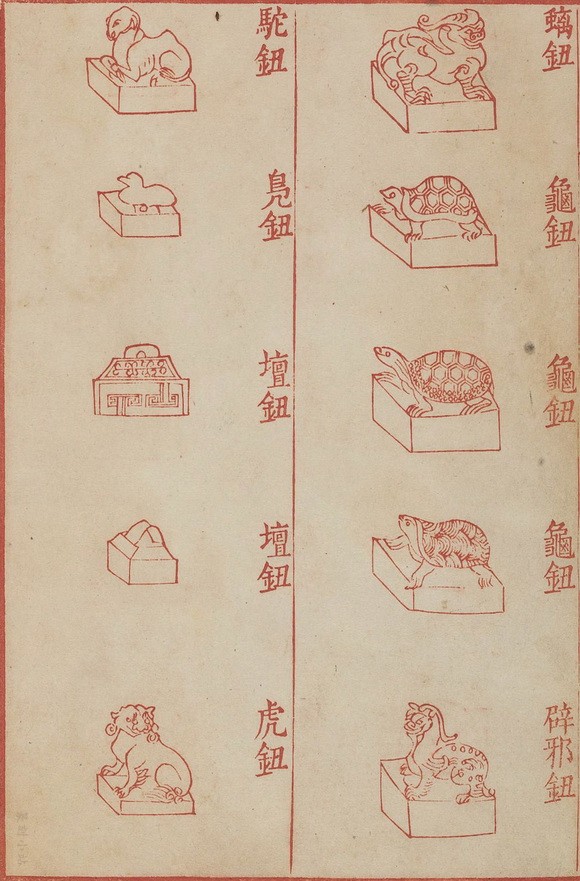 螭鈕
龜鈕
龜鈕
龜鈕
辟邪鈕
駝鈕
鳧鈕
壇鈕
壇鈕
虎鈕